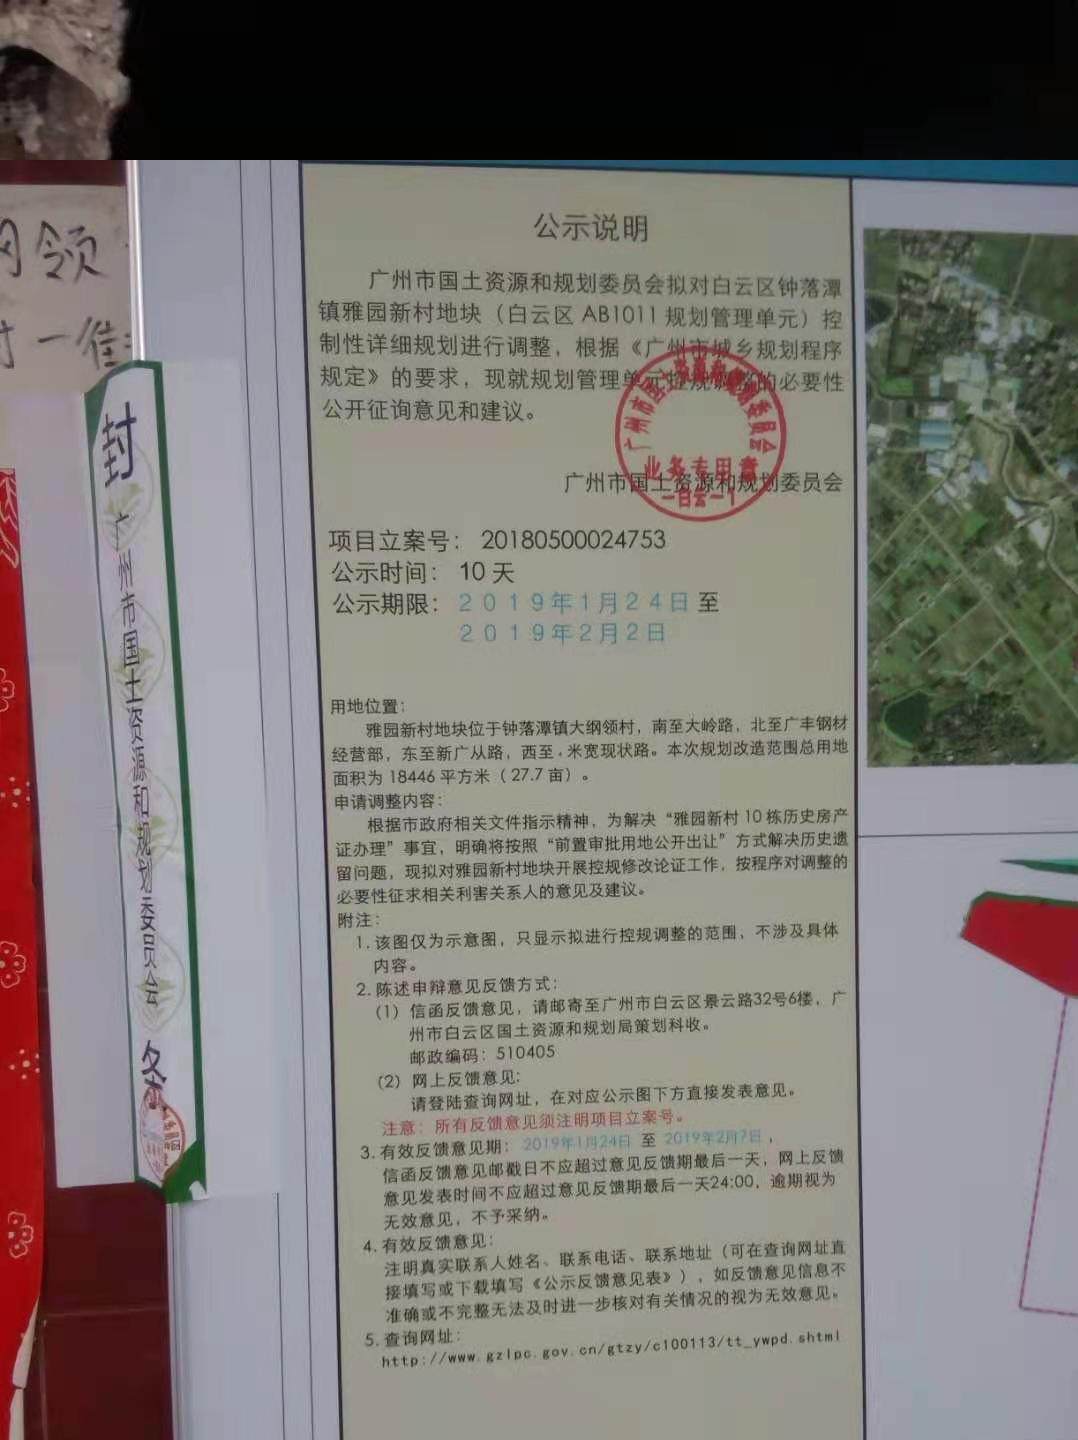 领
一街
封
广州市国土资源和规划委员会
条
公示说明
广州市国土资源和规划委员会拟对白云区钟落潭
镇雅园新村地块（白云区 AB1011 规划管理单元）控
制性详细规划进行调整，根据《广州市城乡规划程序
规定》的要求，现就规划管理单元控规调整的必要性
公开征询意见和建议。
广州市国土资源和规划委员会
业务专用章
—白云—1
广州市国土资源和规划委员会
项目立案号： 20180500024753
公示时间： 10 天
公示期限： 2019年1月24日 至
2019年2月2日
用地位置：
雅园新村地块位于钟落潭镇大纲领村，南至大岭路，北至广丰钢材
经营部，东至新广从路，西至 . 米宽现状路。本次规划改造范围总用地
面积为 18446 平方米（ 27.7 亩）。
申请调整内容：
根据市政府相关文件指示精神，为解决“雅园新村 10 栋历史房产
证办理”事宜，明确将按照“前置审批用地公开出让”方式解决历史遗
留问题，现拟对雅园新村地块开展控规修改论证工作，按程序对调整的
必要性征求相关利害关系人的意见及建议。
附注：
1. 该图仅为示意图，只显示拟进行控规调整的范围，不涉及具体
内容。
2. 陈述申辩意见反馈方式：
（1）信函反馈意见，请邮寄至广州市白云区景云路32号6楼，广
州市白云区国土资源和规划局策划科收。
邮政编码：510405
（2）网上反馈意见：
请登陆查询网址，在对应公示图下方直接发表意见。
注意：所有反馈意见须注明项目立案号。
3. 有效反馈意见期： 2019年1月24日 至 2019年2月7日 ，
信函反馈意见邮戳日不应超过意见反馈期最后一天，网上反馈
意见发表时间不应超过意见反馈期最后一天24:00，逾期视为
无效意见，不予采纳。
4. 有效反馈意见：
注明真实联系人姓名、联系电话、联系地址（可在查询网址直
接填写或下载填写《公示反馈意见表》），如反馈意见信息不
准确或不完整无法及时进一步核对有关情况的视为无效意见。
5. 查询网址：
http://www.gzlpc.gov.cn/gtzy/c100113/tt_ywpd.shtml